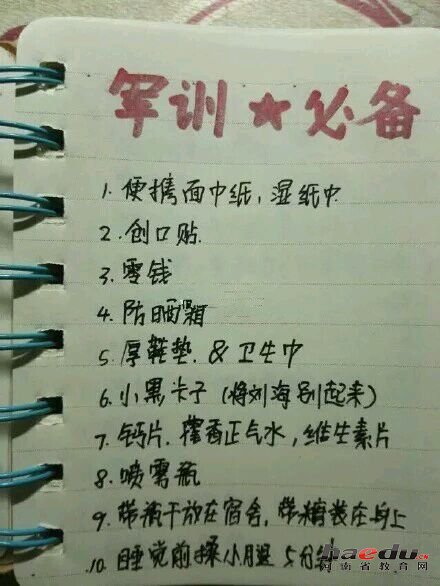 军训★必备
1. 便携面巾纸，湿纸巾
2. 创口贴
3. 零钱
4. 防晒霜
5. 厚鞋垫 & 卫生巾
6. 小黑卡子（将刘海别起来）
7. 钙片. 藿香正气水，维生素片
8. 喷雾瓶
9. 带饼干放在宿舍，带糖装在身上
10. 睡觉前揉小腿 5分钟
haedu.cn
河南省教育网